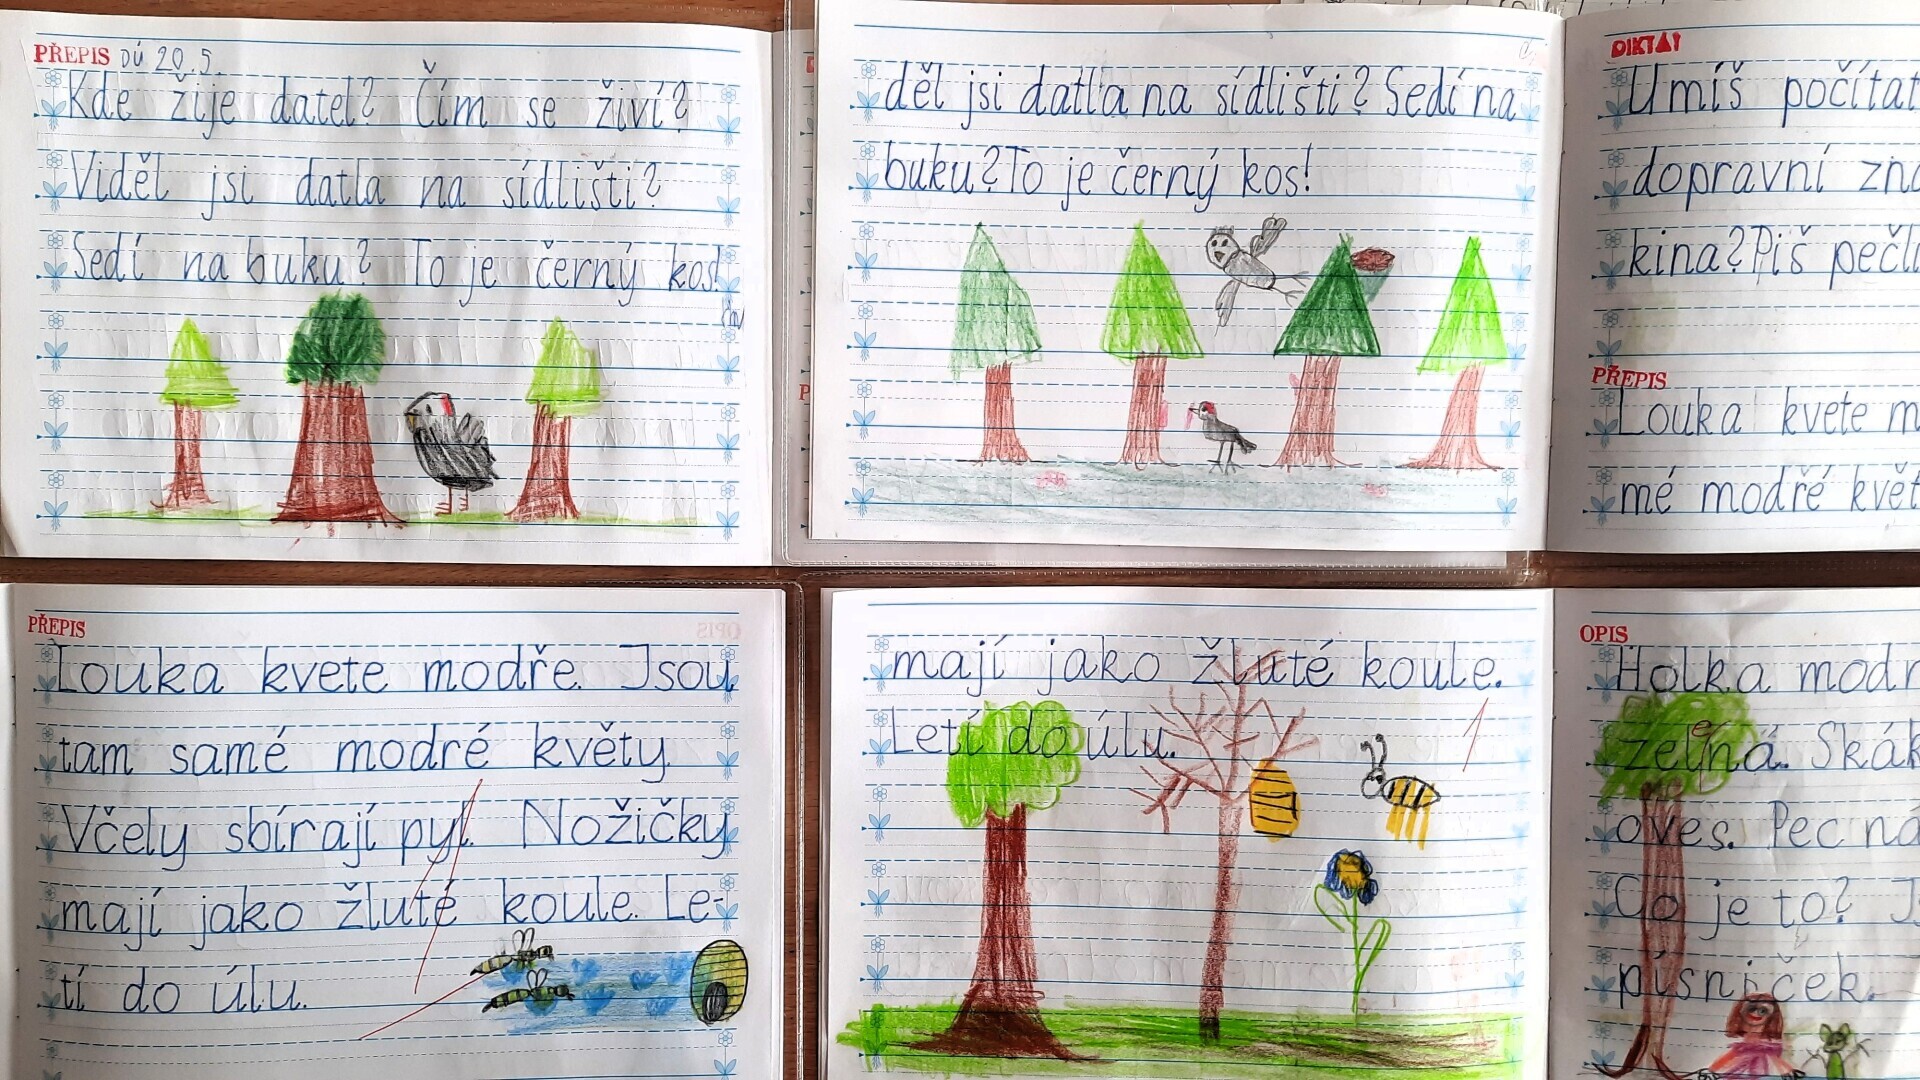 PŘEPIS DÚ 20.5.
Kde žije datel? Čím se živí?
Viděl jsi datla na sídlišti?
Sedí na buku? To je černý kos!
děl jsi datla na sídlišti? Sedí na
buku? To je černý kos!
DIKTÁT
Umíš počítat
dopravní
kina? Piš
PŘEPIS
Louka kvete
mé modré
PŘEPIS
Louka kvete modře. Jsou
tam samé modré květy.
Včely sbírají pyl. Nožičky
mají jako žluté koule. Le-
tí do úlu.
mají jako žluté koule.
Letí do úlu.
1
OPIS
Holka
zelná.
oves. Pec
Co je to?
písniček.